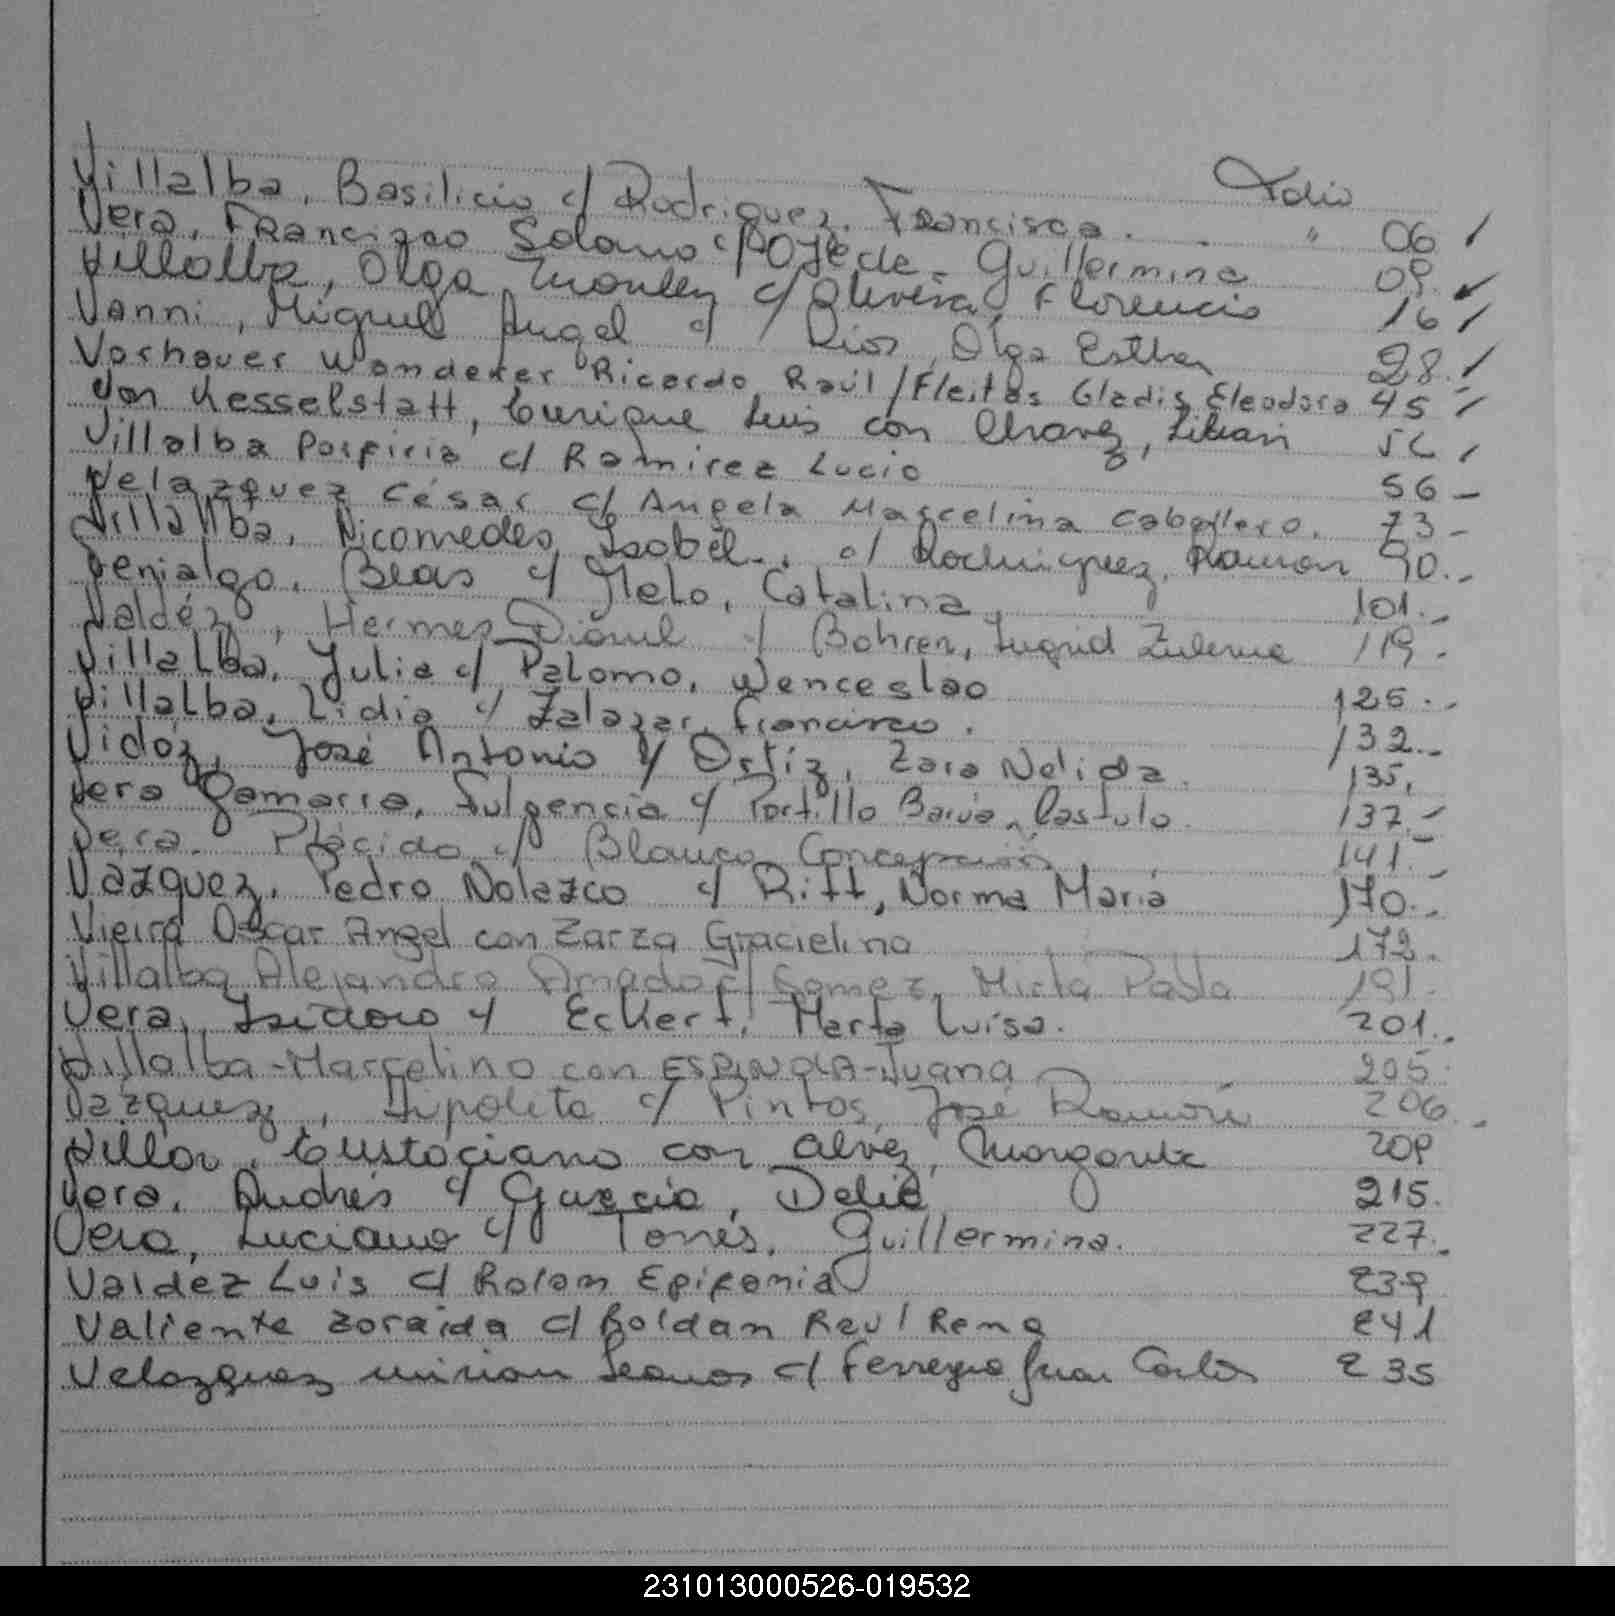 Folio
Villalba, Basilicio c/ Rodriguez, Francisca. . " 06
Vera, Francizco Solano c/ Guillermina 09
Villalba, Olga c/ Olivera, Florencio 16
Vanni, Miguel Angel c/ Rios, Olga Esther 28
Vorhauer Wanderer Ricardo Raúl / Fleitas Gladis Eleodora 45
Von Kesselstatt, Enrique Luis con Chavez, Lilian
Villalba Porfiria c/ Ramirez Lucio 56
Velazquez César c/ Angela Marcelina Caballero. 73
Villalba, Nicomedes Isabel. c/ Rodriguez, Ramon 90.
Blas c/ Melo, Catalina 101.
Valdéz, Hermes c/ Bohren, Ingrid Zulema 119.
Villalba, Julia c/ Palomo, Wenceslao 125.
Villalba, Lidia c/ Zalazar, Francisco. 132.
Vidóz, José Antonio c/ Ortíz, Zara Nelida. 135.
Vera Gamarra, Fulgencia c/ Portillo Castulo. 137.
Vera. Plácido c/ Blanco, Concepción 141.
Vázquez, Pedro Nolazco c/ Ritt, Norma María 170.
Vieira Oscar Angel con Zarza Gracielina 172.
Villalba Alejandro Amado c/ Gomez, Mirta 191.
Vera, Isidoro c/ Eckert, Marta Luisa. 201.
Villalba-Marcelino con ESPINOLA-Juana 205.
Vazquez, Hipolita c/ Pintos, José Ramón 206.
Eustaciano con Alvez, Margarita 209
Vera, Andrés c/ Garcia, Delia 215.
Vera, Luciano c/ Torres, Guillermina. 227.
Valdez Luis c/ Rolon Epifania 239
Valiente Zoraida c/ Roldan Raul Rene 241
Velazquez Mirian c/ Ferreyra Juan Carlos 235
231013000526-019532